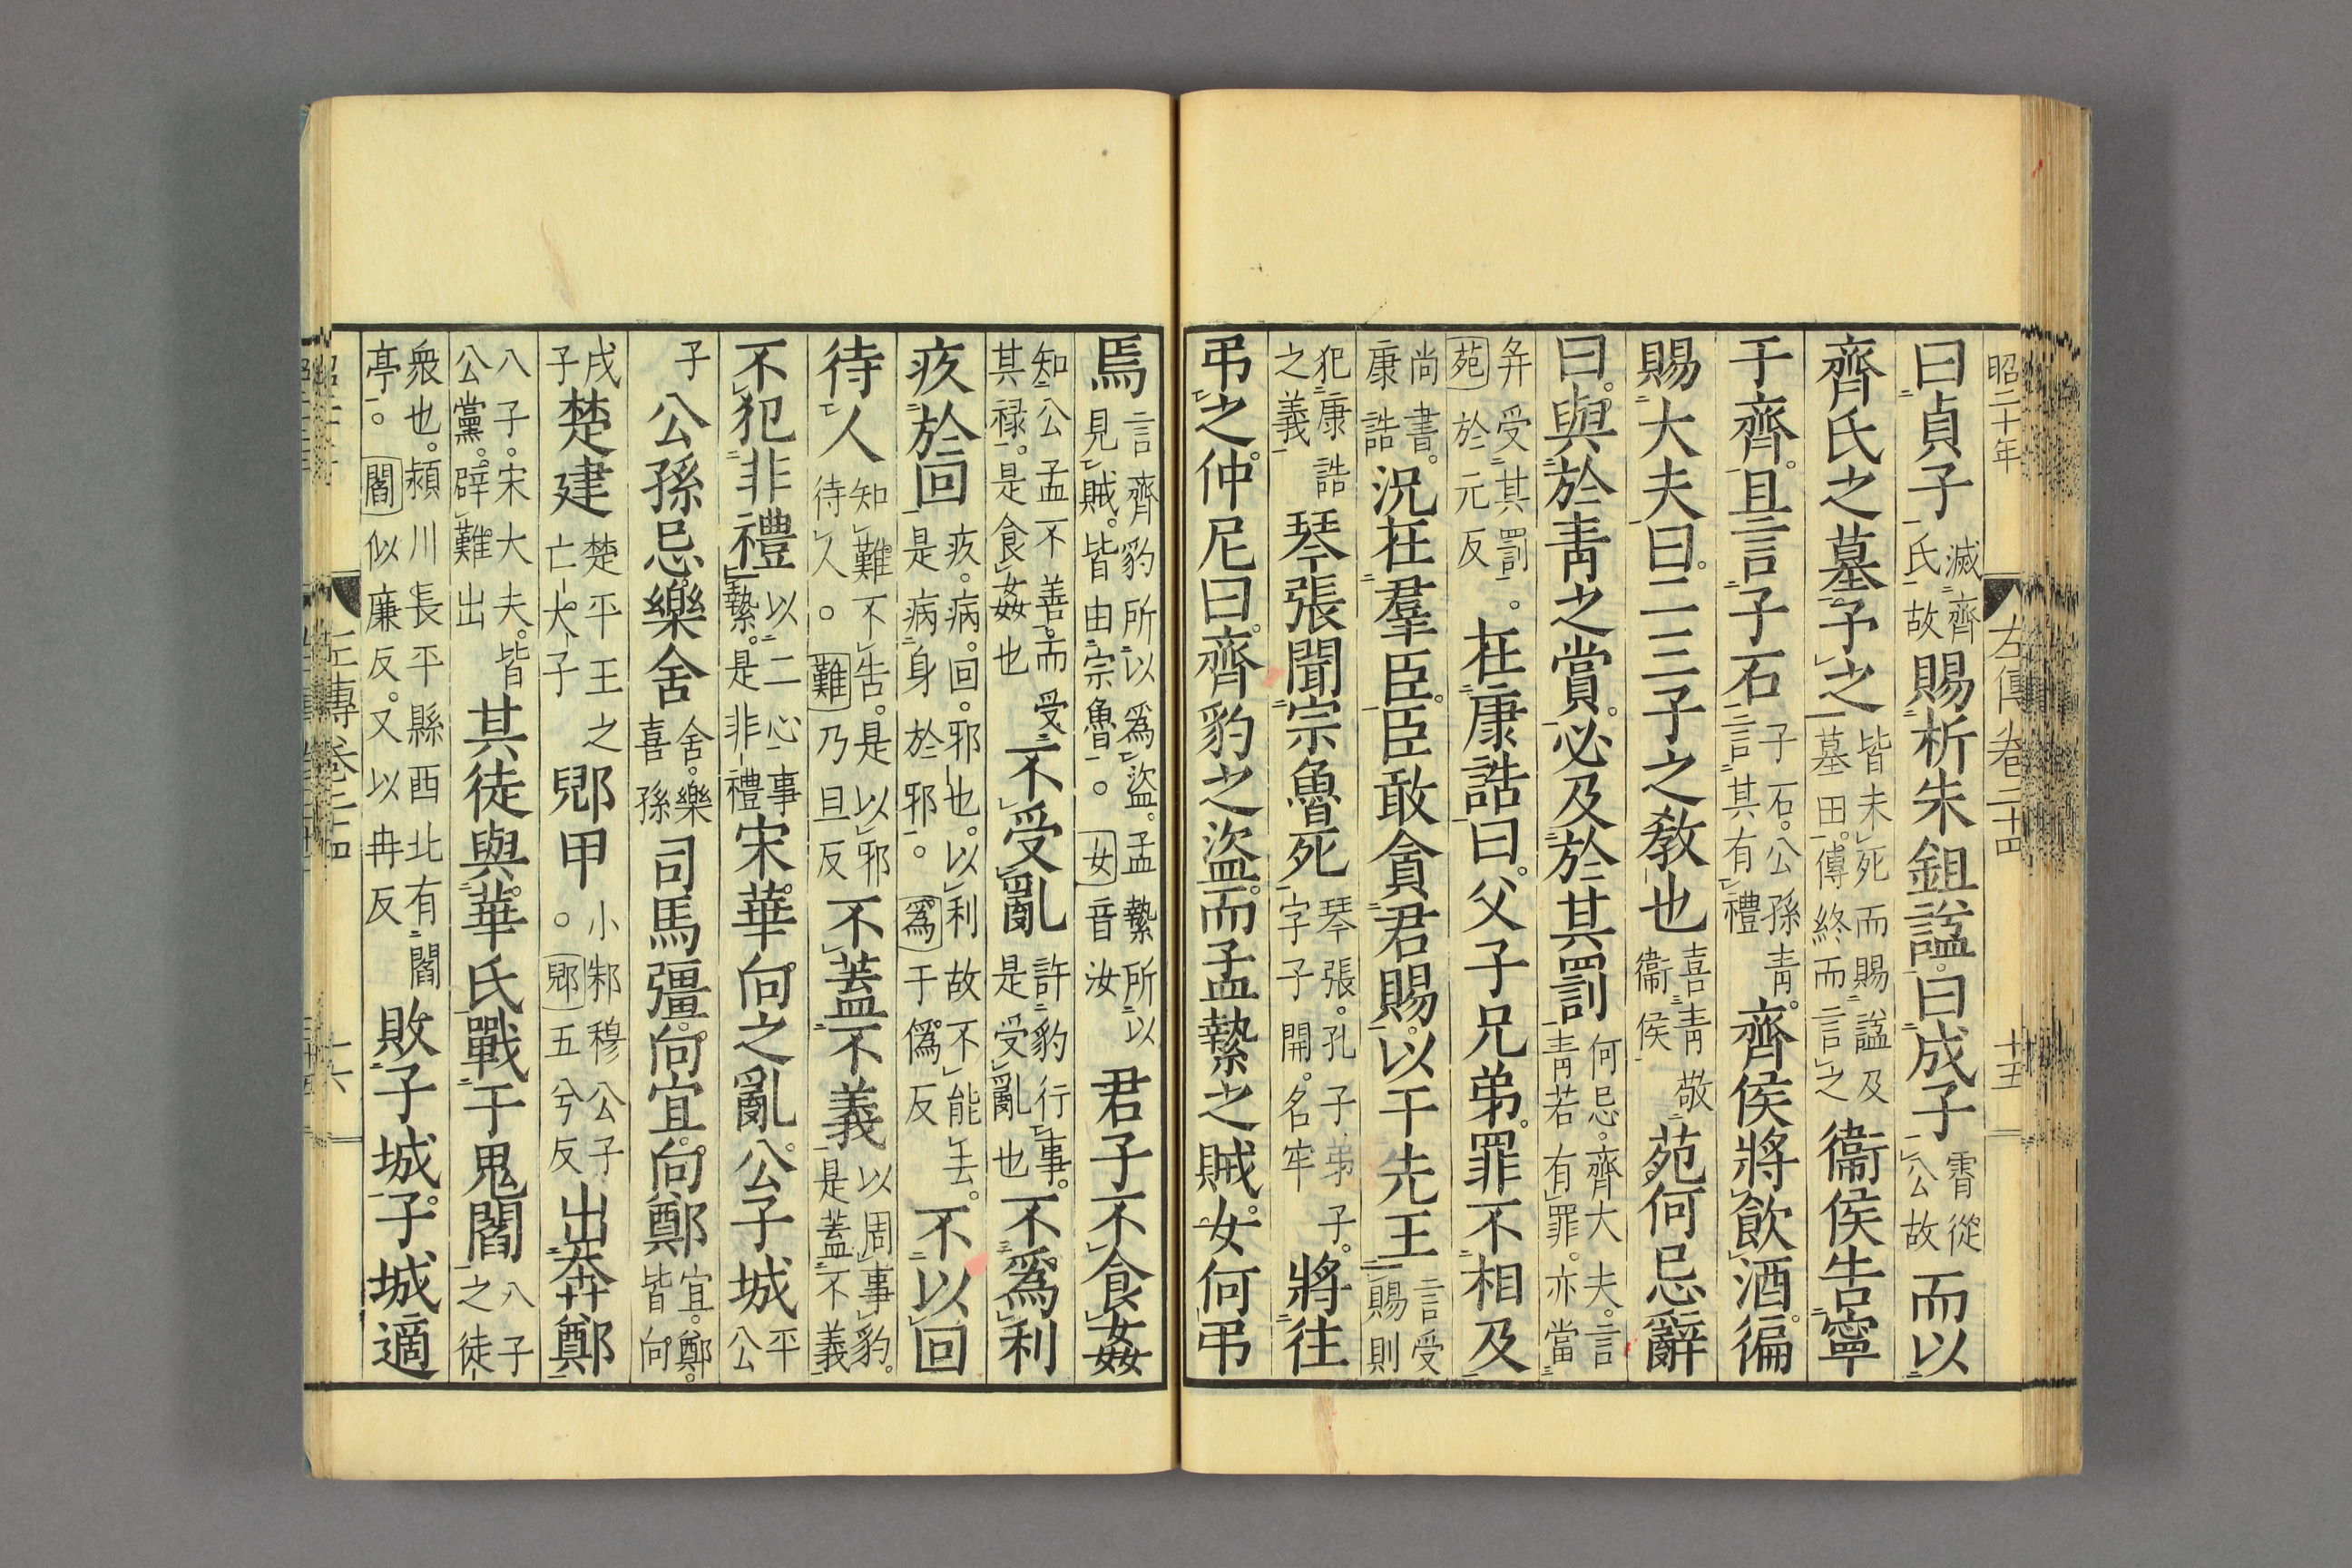 昭二十年　左傳卷二十四　十五
曰貞子滅齊氏故賜析朱鉏謚。曰成子霄從公故而以
齊氏之墓予之皆未死而賜謚及墓田。傳終而言之衞侯告寧
于齊。且言子石子石。公孫青。言其有禮齊侯將飲酒。徧
賜大夫曰。二三子之敎也喜青敬衞侯苑何忌辭
曰。與於青之賞。必及於其罰何忌。齊大夫。言青若有罪。亦當
并受其罰。苑於元反在康誥曰。父子兄弟。罪不相及
尚書。康誥況在羣臣。臣敢貪君賜。以干先王言受賜則
犯康誥之義琴張聞宗魯死琴張。孔子弟子。字子開。名牢將往
弔之。仲尼曰。齊豹之盜。而孟縶之賊。女何弔
焉言齊豹所以爲盜。孟縶所以見賊。皆由宗魯。女音汝君子不食姦
知公孟不善。而受其祿。是食姦也不受亂許豹行事。是受亂也不爲利
疚於回疚。病。回。邪也。以利故不能去。是病身於邪。爲于僞反不以回
待人知難不告。是以邪待人。難乃旦反不蓋不義以周事豹。是蓋不義
不犯非禮以二心事縶。是非禮宋華向之亂。公子城平公
子公孫忌。樂舍舍。樂喜孫司馬彊。向宜。向鄭宜。鄭。皆向
戌子楚建楚平王之亡大子郳甲小邾穆公子。郳五兮反出奔鄭
八子。宋大夫。皆公黨。辟難出其徒與華氏戰于鬼閻八子之徒
衆也。潁川長平縣西北有閻亭。閻似廉反。又以冉反敗子城。子城適